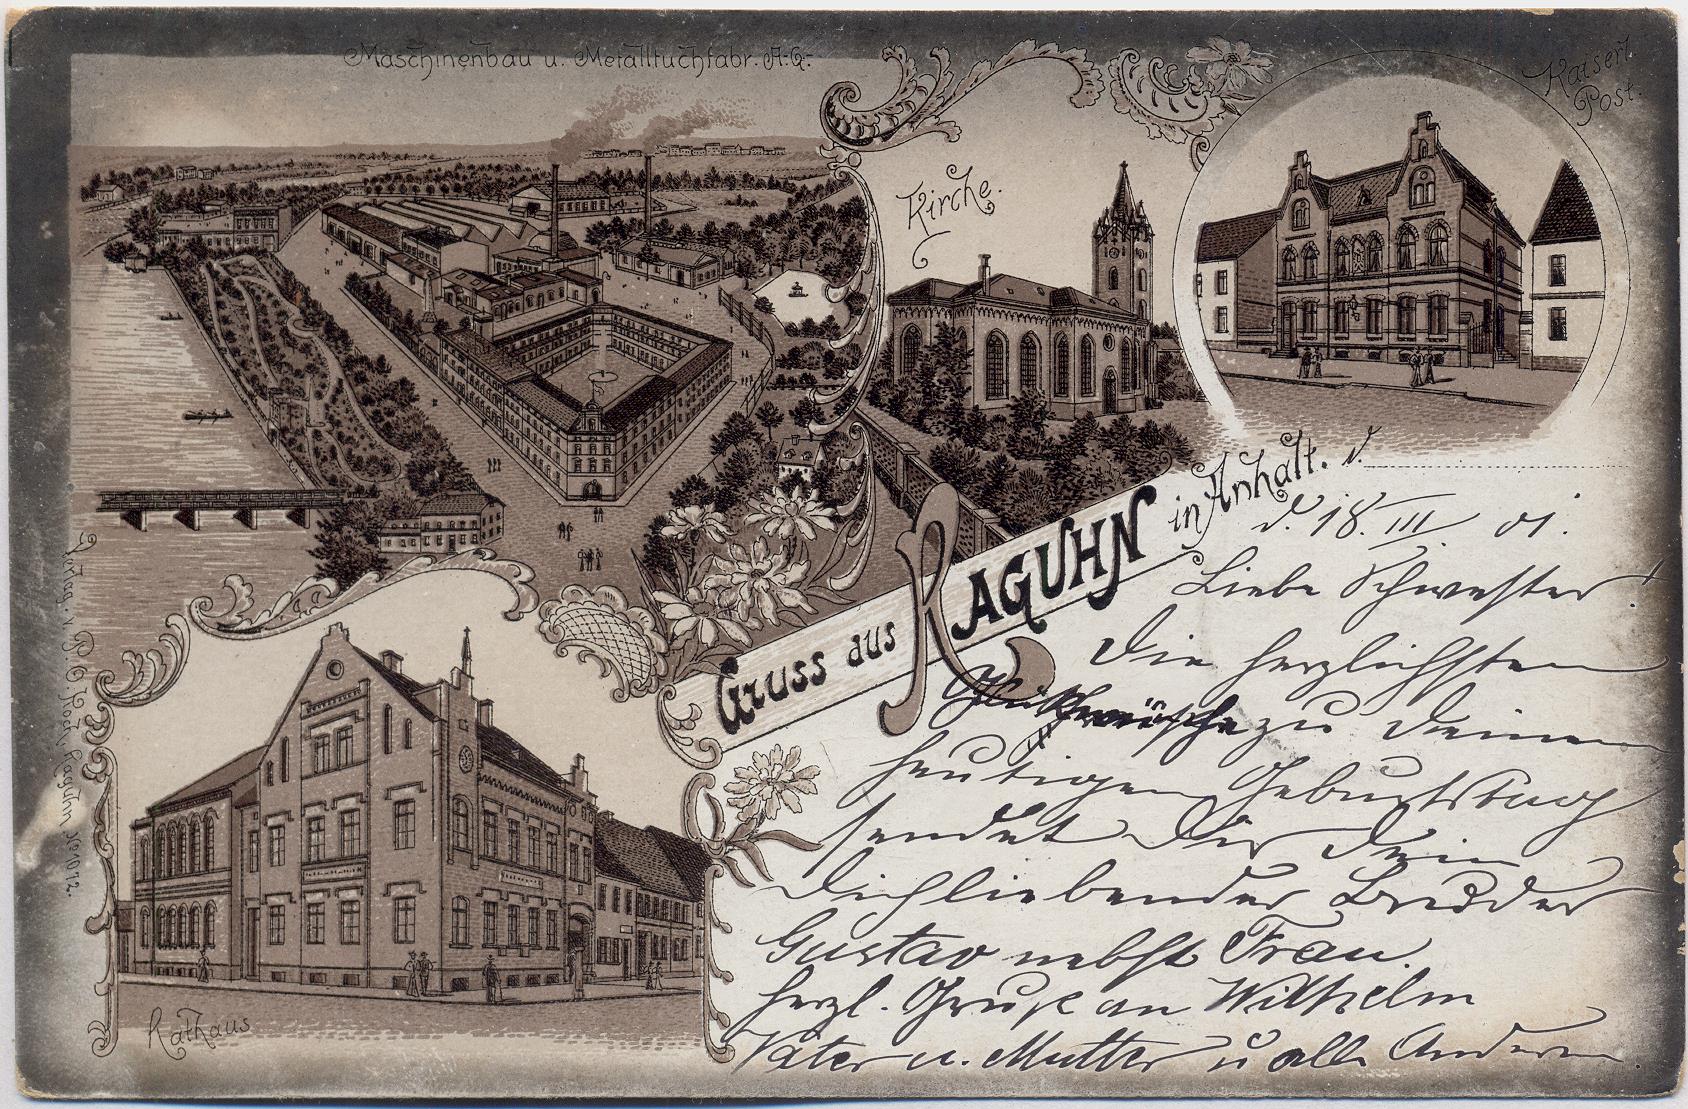 Maschinenbau u. Metalltuchfabr. A-G.
Kaiserl.
Post.
Kirche.
Gruss aus RAGUHN in Anhalt. d.
d. 18. III. 01.
Liebe Schwester!
Die herzlichsten
Glückwünsche zu Deinem
heutigen Geburtstag
sendet Dir Dein
Dichliebender Bruder
Gustav nebst Frau.
herzl. Gruß an Wilhelm
Vater u. Mutter u alle Anderen.
Rathaus
Verlag v. O. Koch, Raguhn No 1012.